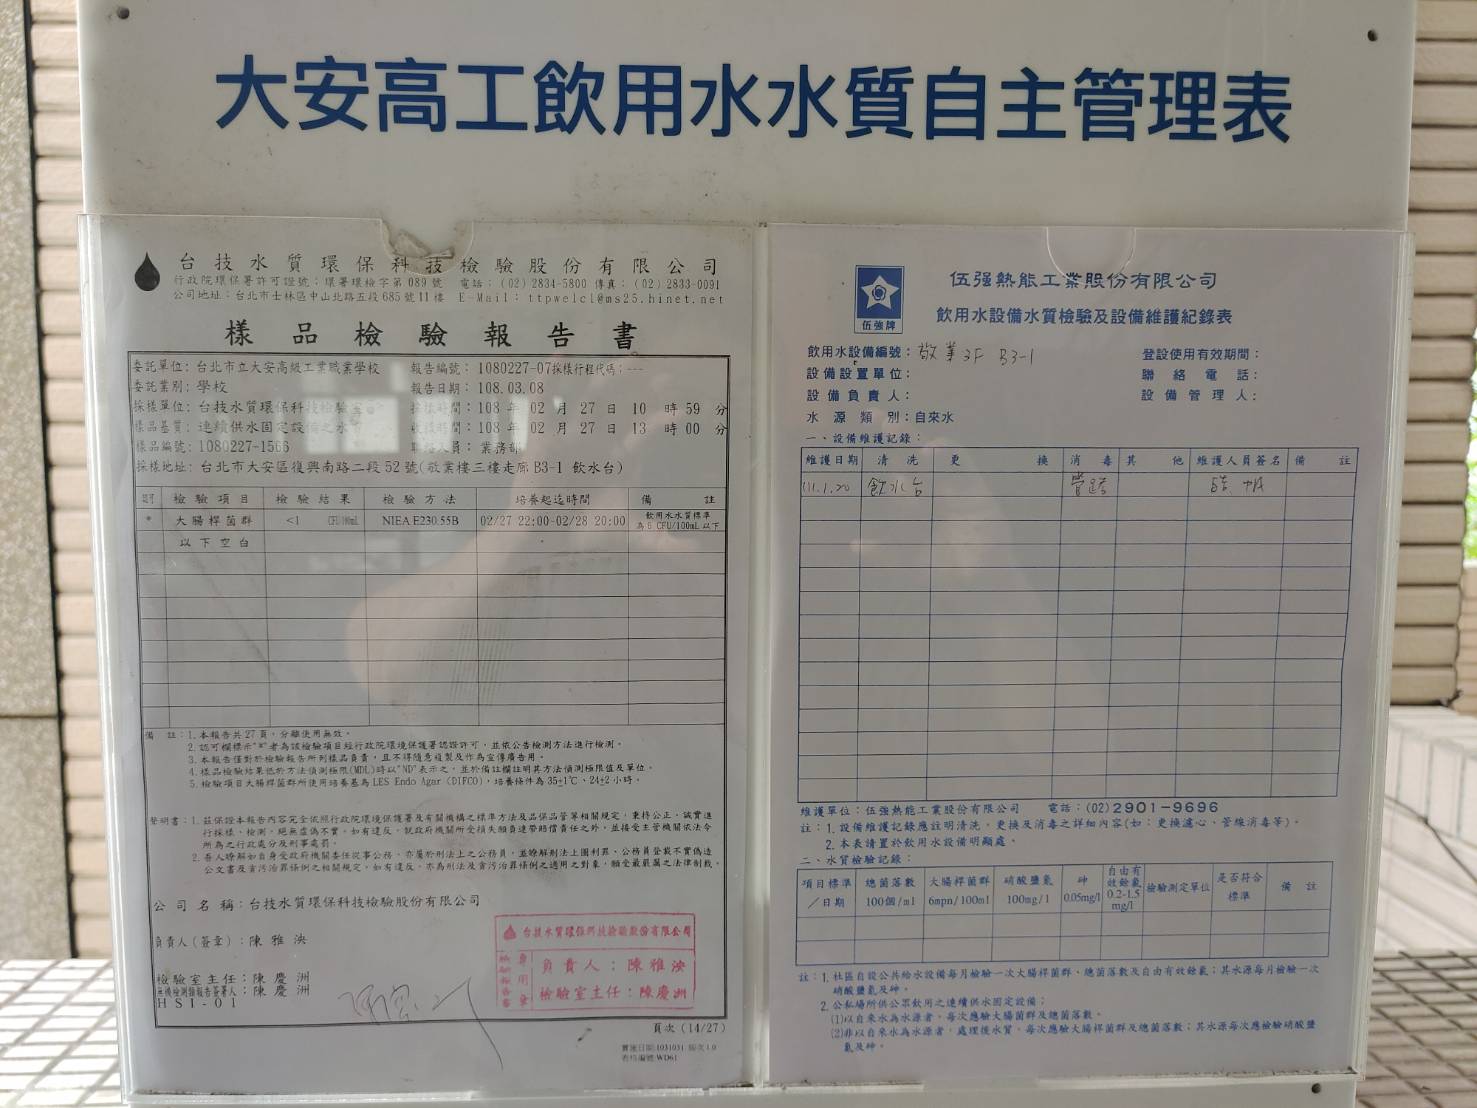 大安高工飲用水水質自主管理表
台技水質環保科技檢驗股份有限公司
行政院環保署許可證號：環署環檢字第089號 電話：(02) 2834-5800 傳真：(02) 2833-0091
公司地址：台北市士林區中山北路五段685號11樓 E-Mail：ttpwelcl@ms25.hinet.net
樣品檢驗報告書
委託單位：台北市立大安高級工業職業學校 報告編號：1080227-07 採樣行程代碼：---
委託業別：學校 報告日期：108.03.08
採樣單位：台技水質環保科技檢驗室 採樣時間：108 年 02 月 27 日 10 時 59 分
樣品基質：連續供水固定設備之水 收樣時間：108 年 02 月 27 日 13 時 00 分
樣品編號：1080227-1566 聯絡人員：業務部
採樣地址：台北市大安區復興南路二段52號(敬業樓三樓走廊 B3-1 飲水台)
檢驗項目 檢驗結果 檢驗方法 培養起迄時間 備註
* 大腸桿菌群 <1 CFU/100mL NIEA E230.55B 02/27 22:00-02/28 20:00 飲用水水質標準為 6 CFU/100mL 以下
以下空白
備 註：1.本報告共27頁，分離使用無效。
2.認可欄標示"*"者為該檢驗項目經行政院環境保護署認證許可，並依公告檢測方法進行檢測。
3.本報告僅對於檢驗報告所列樣品負責，且不得隨意複製及作為宣傳廣告用。
4.樣品檢驗結果低於方法偵測極限(MDL)時以"ND"表示之，並於備註欄註明其方法偵測極限值及單位。
5.檢驗項目大腸桿菌群所使用培養基為 LES Endo Agar (DIFCO)，培養條件為 35±1℃、24±2小時。
聲明書：1.茲保證本報告內容完全依照行政院環境保護署及有關機構之標準方法及品保品管等相關規定，秉持公正、誠實進
行採樣、檢測。絕無虛偽不實，如有違反，就政府機關所受損失願負連帶賠償責任之外，並接受主管機關依法令
所為之行政處分及刑事處罰。
2.吾人瞭解如自身受政府機關委任從事公務，亦屬於刑法上之公務員，並瞭解刑法上圖利罪、公務員登載不實偽造
公文書及貪污治罪條例之相關規定，如有違反，亦為刑法及貪污治罪條例之適用之對象，願受最嚴厲之法律制裁。
公司名稱：台技水質環保科技檢驗股份有限公司
負責人(簽章)：陳雅泱
檢驗室主任：陳慶洲
無機檢測類報告簽署人：陳慶洲
HSI-01
台技水質環保科技檢驗股份有限公司
檢驗報告書專用章
負責人：陳雅泱
檢驗室主任：陳慶洲
頁次 (14/27)
實施日期:1031031 版次1.0
表格編號:WD61
伍強牌
伍强熱能工業股份有限公司
飲用水設備水質檢驗及設備維護紀錄表
飲用水設備編號：敬業3F B3-1 登設使用有效期間：
設備設置單位： 聯絡電話：
設備負責人： 設備管理人：
水源類別：自來水
一、設備維護記錄：
維護日期 清洗 更換 消毒 其他 維護人員簽名 備註
111.1.20 飲水台 管路
維護單位：伍强熱能工業股份有限公司 電話：(02)2901-9696
註：1.設備維護記錄應註明清洗、更換及消毒之詳細內容(如：更換濾心、管線消毒等)。
2.本表請置於飲用水設備明顯處。
二、水質檢驗記錄：
項目標準／日期 總菌落數 100個/ml 大腸桿菌群 6mpn/100ml 硝酸鹽氮 100mg/l 砷 0.05mg/l 自由有效餘氯 0.2-1.5 mg/l 檢驗測定單位 是否符合標準 備註
註：1.社區自設公共給水設備每月檢驗一次大腸桿菌群、總菌落數及自由有效餘氯；其水源每月檢驗一次
硝酸鹽氮及砷。
2.公私場所供公眾飲用之連續供水固定設備：
(1)以自來水為水源者，每次應驗大腸菌群及總菌落數。
(2)非以自來水為水源者，處理後水質，每次應驗大腸桿菌群及總菌落數；其水源每次應檢驗硝酸鹽
氮及砷。